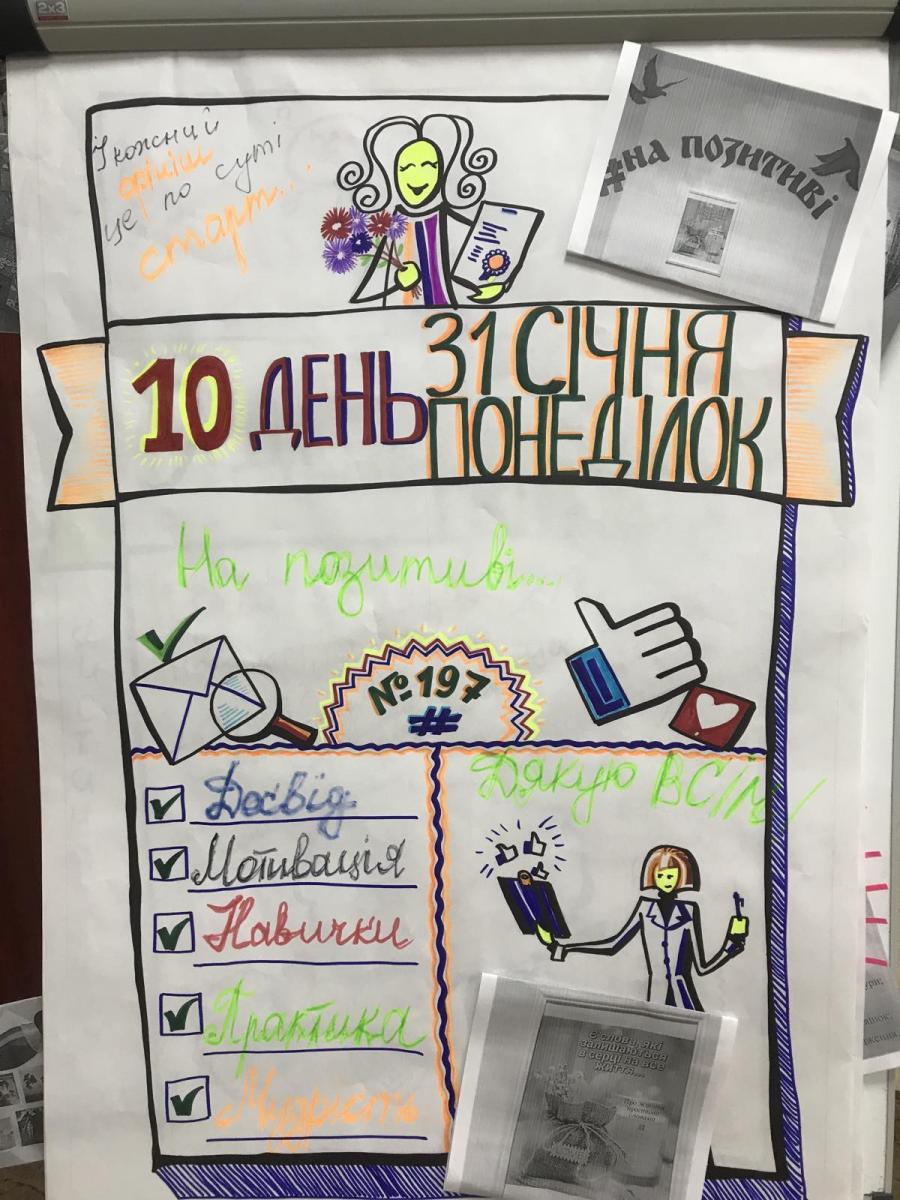 2x3
І кожний
фініш
це по суті
старт...
#на позитиві
10 ДЕНЬ
31 СІЧНЯ
ПОНЕДІЛОК
На позитиві...
№197
#
Досвід
Мотивація
Навички
Практика
Мудрість
Дякую ВСІМ!
Є слова, які
залишаються
в серці на все
життя...
Про життя
простими
словами